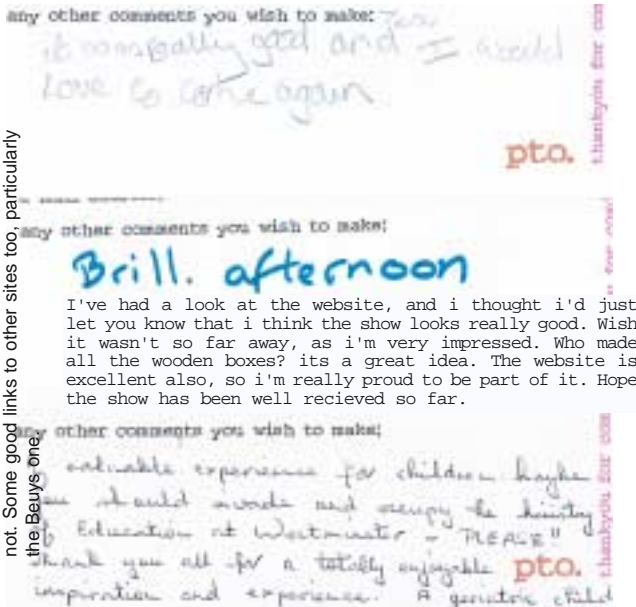 any other comments you wish to make:
it was really good and I would
Love to come again
pto.
thankyou for com
any other comments you wish to make:
Brill. afternoon
I've had a look at the website, and i thought i'd just
let you know that i think the show looks really good. Wish
it wasn't so far away, as i'm very impressed. Who made
all the wooden boxes? its a great idea. The website is
excellent also, so i'm really proud to be part of it. Hope
the show has been well recieved so far.
not. Some good links to other sites too, particularly
the Beuys one.
any other comments you wish to make:
valuable experience for children maybe
you should invade and occupy the ministry
of Education at Westminster - "PLEASE"
Thank you all for a totally enjoyable
pto.
inspiration and experience. A geriatric child
thankyou for com